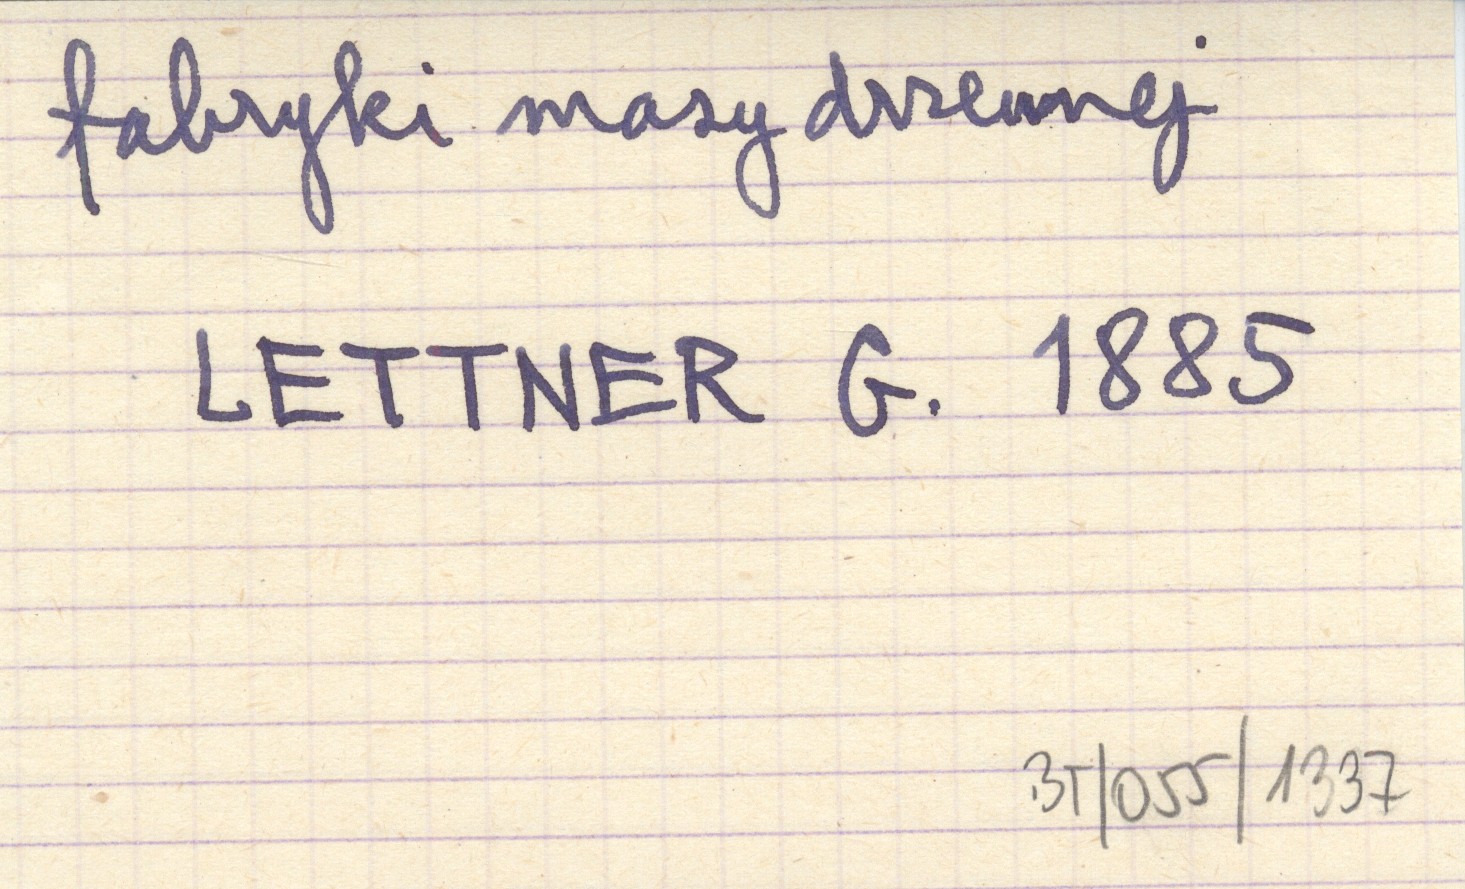 fabryki masy drzewnej
LETTNER G. 1885
BT/055/1337